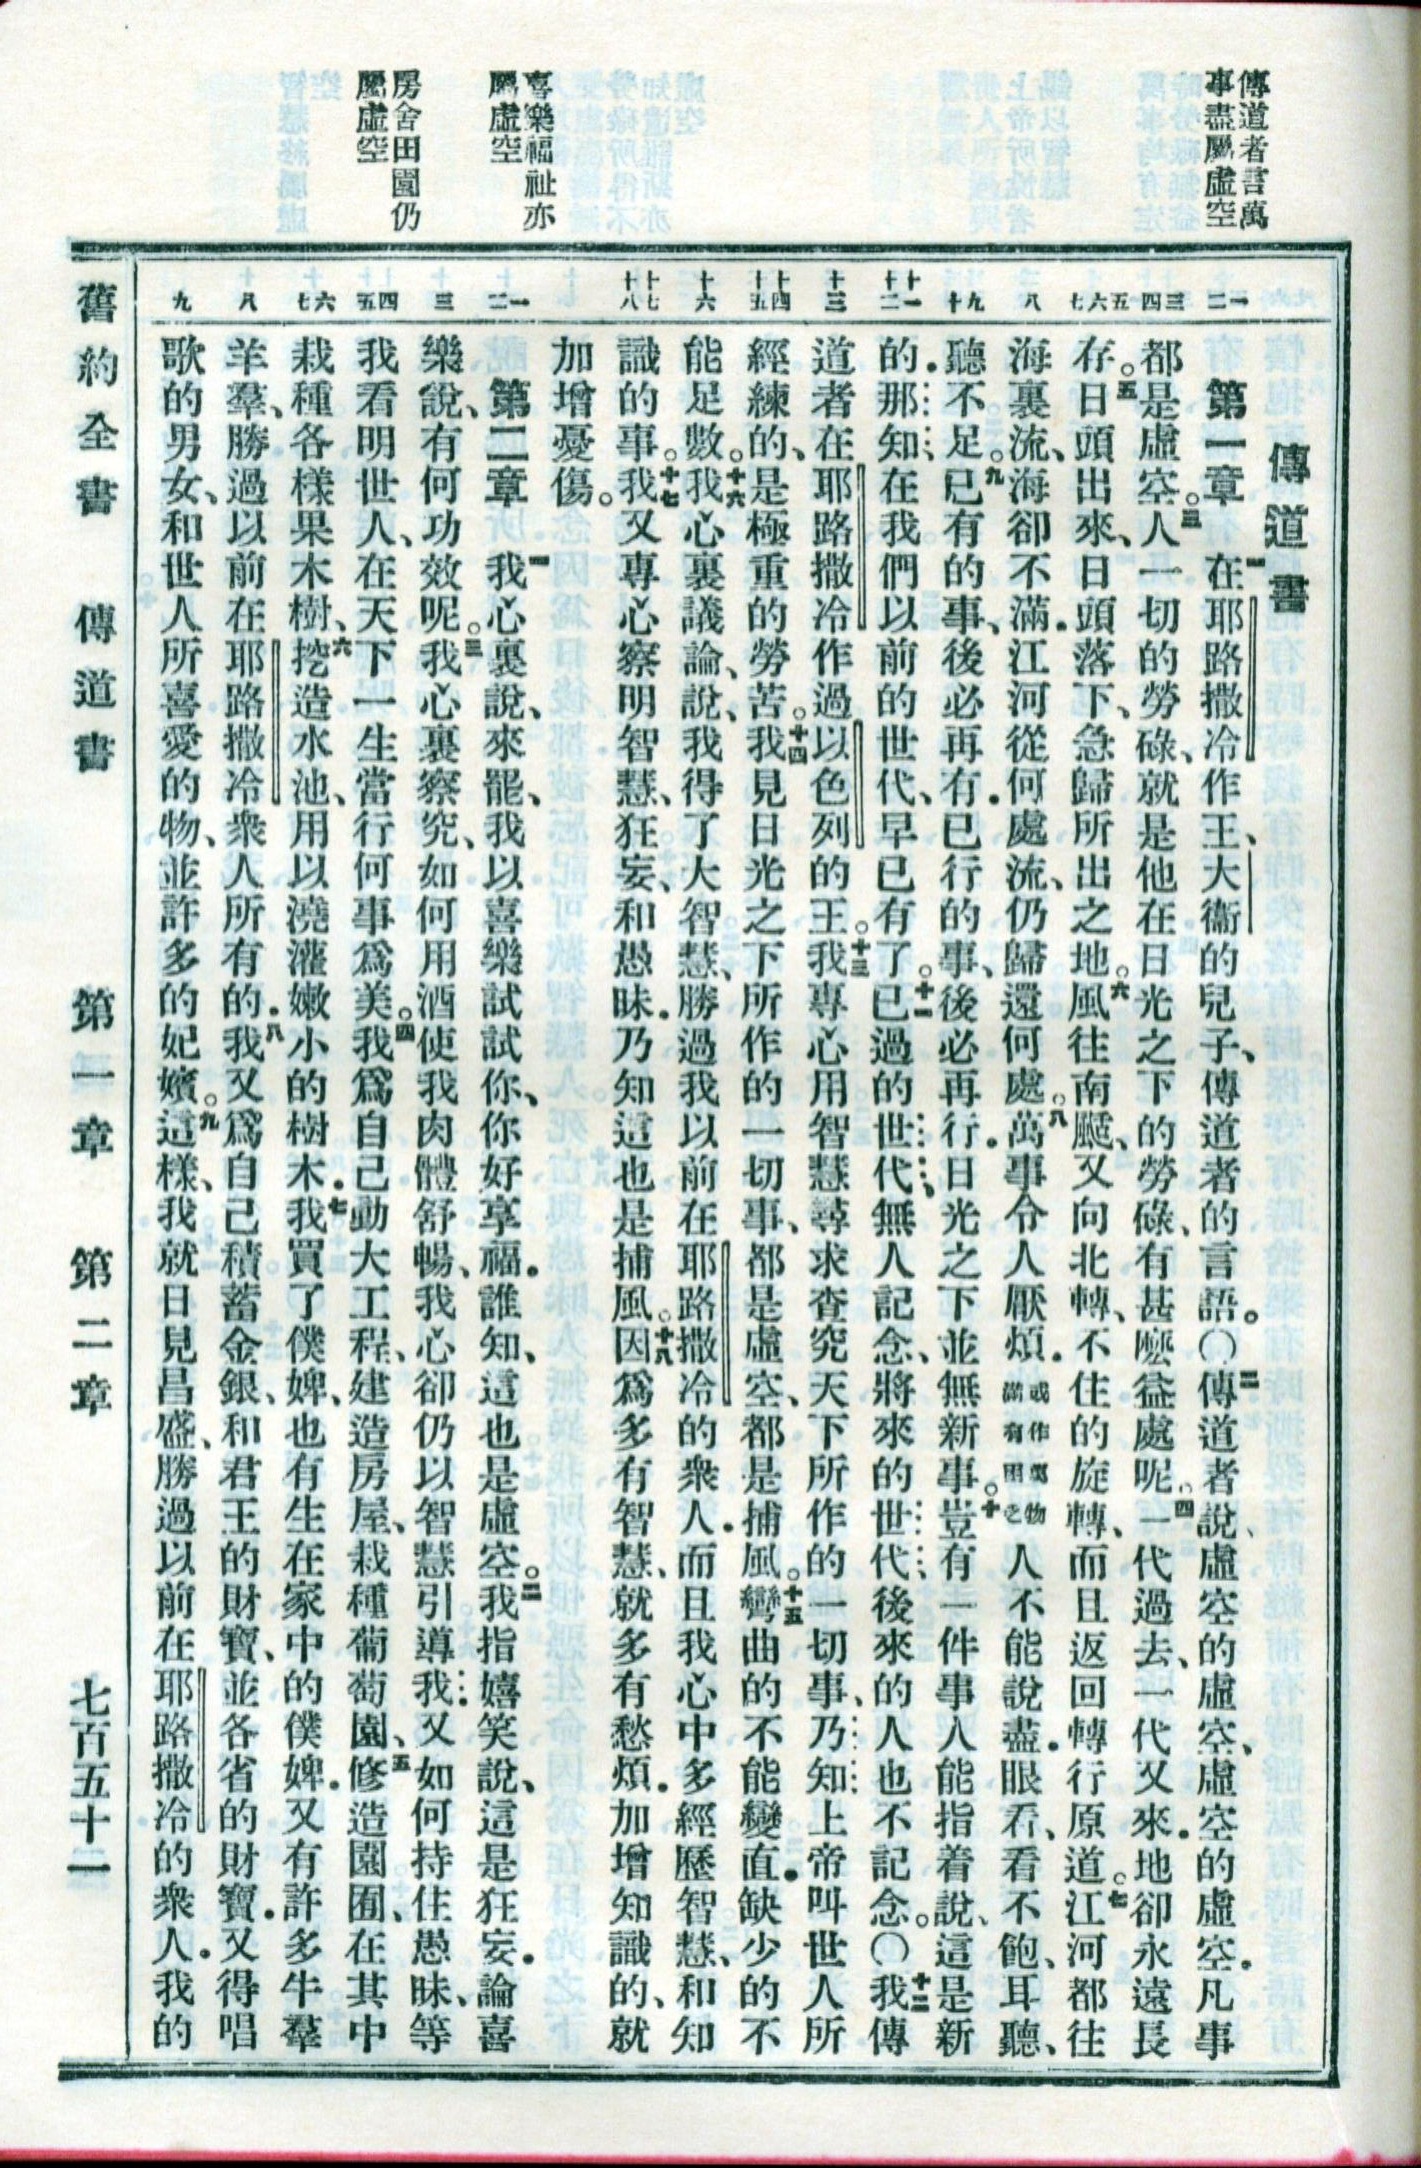 傳道者言萬
事盡屬虛空
喜樂福祉亦
屬虛空
房舍田園仍
屬虛空
傳道書
一 二 三 四 五 六 七 八 九 十 十一 十二 十三 十四 十五 十六 十七 十八 一 二 三 四 五 六 七 八 九
第一章 一在耶路撒冷作王、大衞的兒子、傳道者的言語。〇二傳道者說、虛空的虛空、虛空的虛空.凡事
都是虛空。三人一切的勞碌、就是他在日光之下的勞碌、有甚麽益處呢。四一代過去、一代又來.地卻永遠長
存。五日頭出來、日頭落下、急歸所出之地。六風往南颳、又向北轉、不住的旋轉、而且返回轉行原道。七江河都往
海裏流、海卻不滿.江河從何處流、仍歸還何處。八萬事令人厭煩.或作萬物滿有困乏人不能說盡.眼看、看不飽、耳聽、
聽不足。九已有的事、後必再有.已行的事、後必再行.日光之下並無新事。十豈有一件事人能指着說、這是新
的.那知、在我們以前的世代、早已有了。十一已過的世代、無人記念、將來的世代後來的人也不記念。〇十二我傳
道者在耶路撒冷作過以色列的王。十三我專心用智慧尋求查究天下所作的一切事、乃知上帝叫世人所
經練的、是極重的勞苦。十四我見日光之下所作的一切事、都是虛空、都是捕風。十五彎曲的不能變直.缺少的不
能足數。十六我心裏議論、說、我得了大智慧、勝過我以前在耶路撒冷的衆人.而且我心中多經歷智慧、和知
識的事。十七我又專心察明智慧、狂妄、和愚昧.乃知這也是捕風。十八因爲多有智慧、就多有愁煩.加增知識的、就
加增憂傷。
第二章 一我心裏說、來罷、我以喜樂試試你、你好享福.誰知、這也是虛空。二我指嬉笑說、這是狂妄.論喜
樂說、有何功效呢。三我心裏察究、如何用酒使我肉體舒暢、我心卻仍以智慧引導我.又如何持住愚昧、等
我看明世人、在天下一生當行何事爲美。四我爲自己動大工程、建造房屋、栽種葡萄園、五修造園囿、在其中
栽種各樣果木樹、六挖造水池、用以澆灌嫩小的樹木.七我買了僕婢、也有生在家中的僕婢.又有許多牛羣
羊羣、勝過以前在耶路撒冷衆人所有的.八我又爲自己積蓄金銀、和君王的財寶、並各省的財寶.又得唱
歌的男女、和世人所喜愛的物、並許多的妃嬪。九這樣、我就日見昌盛、勝過以前在耶路撒冷的衆人.我的
舊約全書 傳道書 第一章 第二章 七百五十二